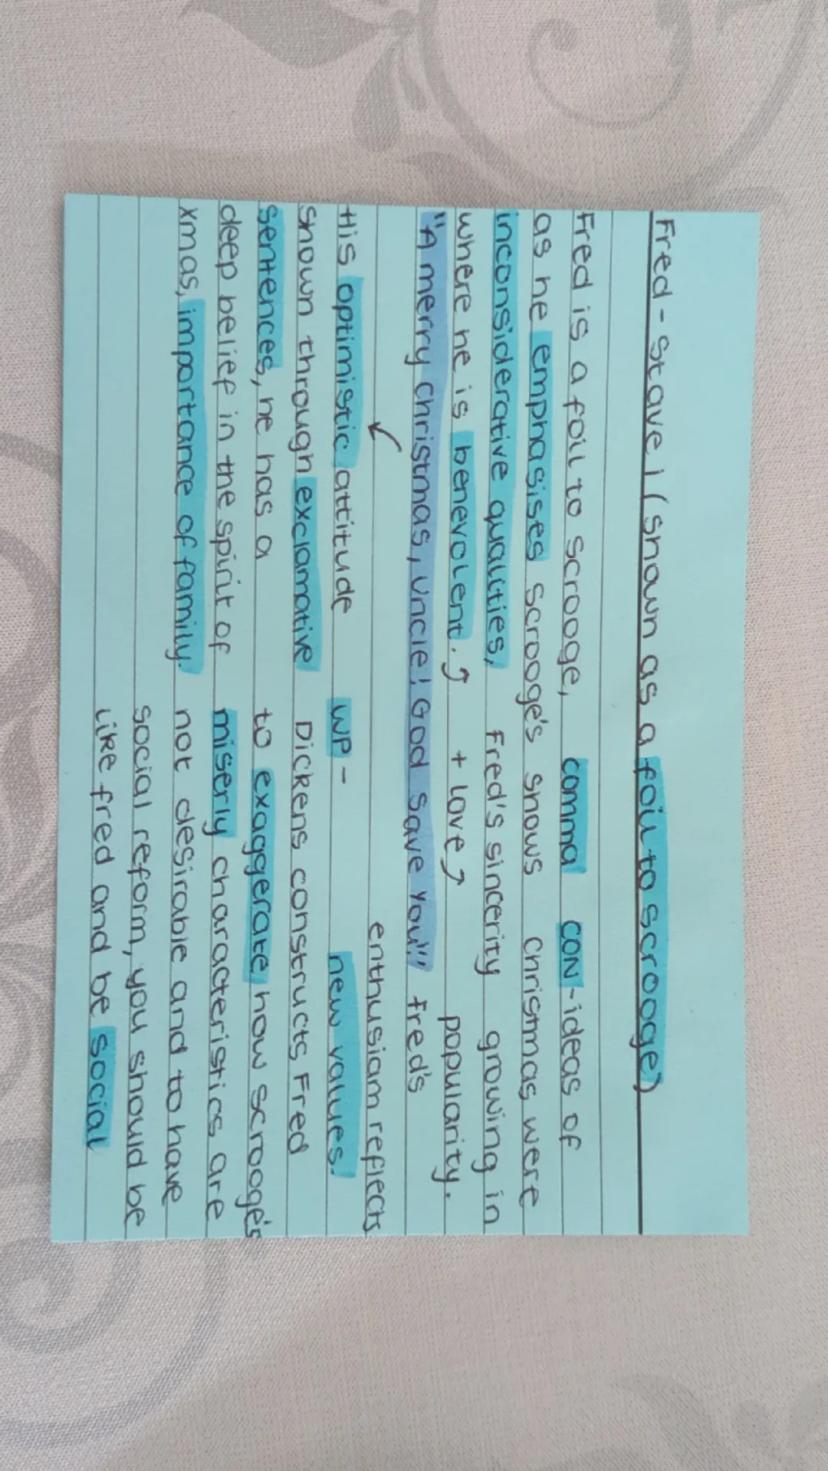 Fred - Stave 1 (shown as a foil to scrooge)
Fred is a foil to scrooge,
as he emphasises scrooge's
inconsiderative qualities,
where he is benevolent.
comma
shows
Fred's sincerity
+ love
CON - ideas of
Christmas were
growing in
popularity.
"A merry christmas, uncle! God save you!"
Fred's
enthusiam reflects
new values.
His optimistic attitude
shown through exclamative
sentences, he has a
deep belief in the spirit of
xmas, importance of family.
WP -
Dickens constructs Fred
to exaggerate how scrooge's
miserly characteristics are
not desirable and to have
social reform, you should be
like fred and be social